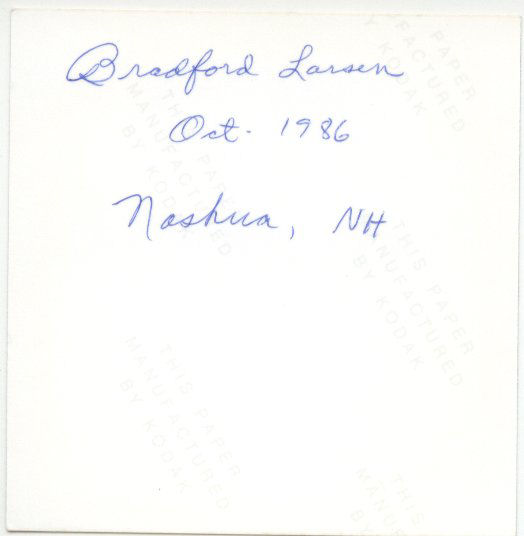 Bradford Larsen
Oct. 1986
Nashua, NH
PAPER
MANUFACTURED
BY KODAK
THIS PAPER
MANUFACTURED
BY KODAK
THIS PAPER
MANUFACTURED
BY KODAK
THIS PAPER
MANUFACTURED
BY KODAK
THIS